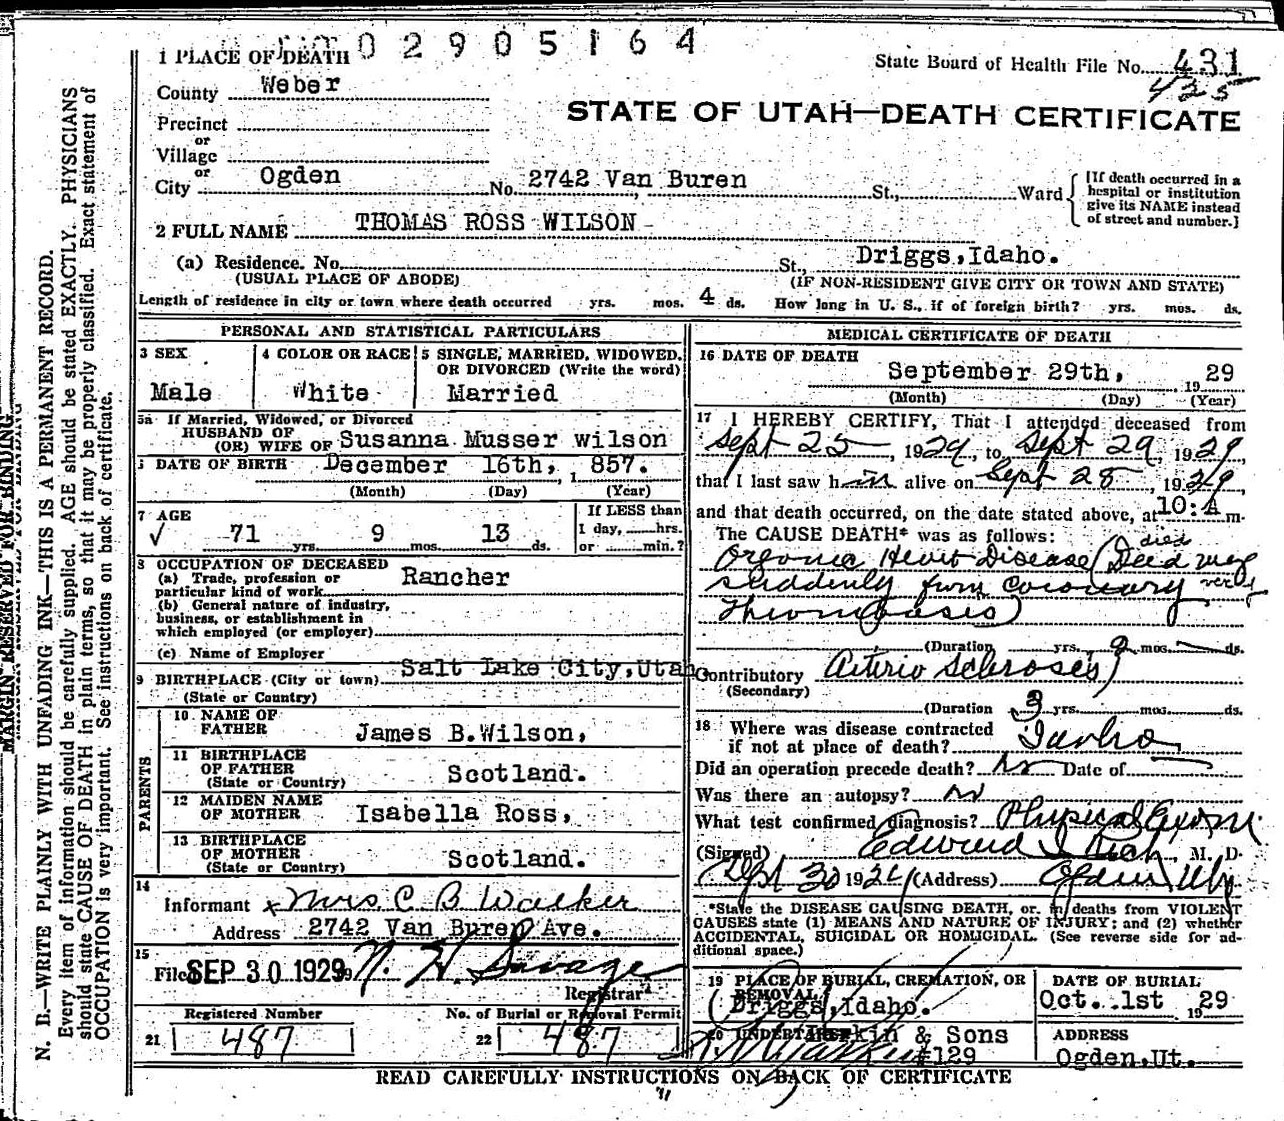 02905164
1 PLACE OF DEATH
State Board of Health File No. 431
425
County Weber
STATE OF UTAH—DEATH CERTIFICATE
Precinct
or
Village
or
City Ogden No. 2742 Van Buren St., Ward
[If death occurred in a hospital or institution give its NAME instead of street and number.]
2 FULL NAME THOMAS ROSS WILSON
(a) Residence. No. St., Driggs, Idaho.
(USUAL PLACE OF ABODE) (IF NON-RESIDENT GIVE CITY OR TOWN AND STATE)
Length of residence in city or town where death occurred yrs. mos. 4 ds. How long in U. S., if of foreign birth? yrs. mos. ds.
PERSONAL AND STATISTICAL PARTICULARS
3 SEX Male
4 COLOR OR RACE White
5 SINGLE, MARRIED, WIDOWED, OR DIVORCED (Write the word) Married
5a If Married, Widowed, or Divorced
HUSBAND OF
(OR) WIFE OF Susanna Musser wilson
DATE OF BIRTH December 16th, 1857.
(Month) (Day) (Year)
7 AGE
√ 71 yrs. 9 mos. 13 ds.
If LESS than
1 day, hrs.
or min.?
8 OCCUPATION OF DECEASED
(a) Trade, profession or
particular kind of work Rancher
(b) General nature of industry,
business, or establishment in
which employed (or employer)
(c) Name of Employer
9 BIRTHPLACE (City or town) Salt Lake City, Utah
(State or Country)
PARENTS
10 NAME OF
FATHER James B. Wilson,
11 BIRTHPLACE
OF FATHER
(State or Country) Scotland.
12 MAIDEN NAME
OF MOTHER Isabella Ross,
13 BIRTHPLACE
OF MOTHER
(State or Country) Scotland.
14
Informant x Mrs C B Walker
Address 2742 Van Buren Ave.
15
Filed SEP 30 1929 N. H. Savage
Registrar
Registered Number No. of Burial or Removal Permit
21 487 22 487
MEDICAL CERTIFICATE OF DEATH
16 DATE OF DEATH
September 29th, 1929
(Month) (Day) (Year)
17 I HEREBY CERTIFY, That I attended deceased from
Sept 25, 1929, to Sept 29, 1929,
that I last saw him alive on Sept 28, 1929
and that death occurred, on the date stated above, at 10:A m.
The CAUSE DEATH* was as follows:
died
Organic Heart Disease (Died very
suddenly from Coronary very
Thrombosis)
(Duration yrs. 9 mos. ds.
Contributory Arterio Scleroses
(Secondary)
(Duration 3 yrs. mos. ds.
18 Where was disease contracted
if not at place of death? Idaho
Did an operation precede death? no Date of
Was there an autopsy? no
What test confirmed diagnosis? Physical Exam
(Signed) Edward I Rich, M. D.
Sept 30 1929 (Address) Ogden Utg
*State the DISEASE CAUSING DEATH, or, in deaths from VIOLENT
CAUSES state (1) MEANS AND NATURE OF INJURY; and (2) whether
ACCIDENTAL, SUICIDAL OR HOMICIDAL. (See reverse side for ad-
ditional space.)
19 PLACE OF BURIAL, CREMATION, OR
REMOVAL
Driggs, Idaho.
DATE OF BURIAL
Oct. 1st 1929
20 UNDERTAKER Larkin & Sons
#129
ADDRESS
Ogden, Ut.
READ CAREFULLY INSTRUCTIONS ON BACK OF CERTIFICATE
MARGIN RESERVED FOR BINDING
N. B.—WRITE PLAINLY WITH UNFADING INK—THIS IS A PERMANENT RECORD.
Every item of information should be carefully supplied. AGE should be stated EXACTLY. PHYSICIANS
should state CAUSE OF DEATH in plain terms, so that it may be properly classified. Exact statement of
OCCUPATION is very important. See instructions on back of certificate.